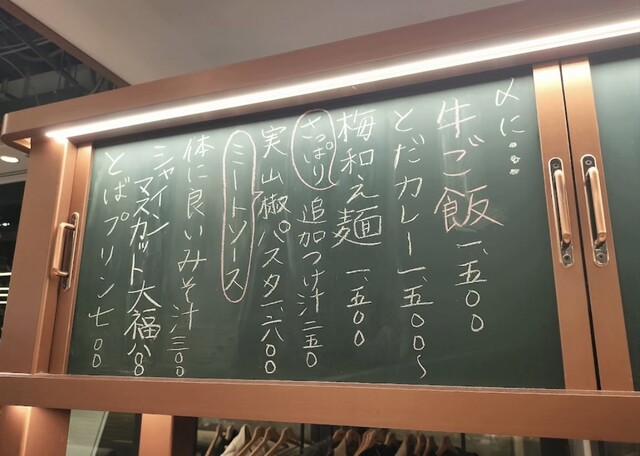 〆に…
牛ご飯 一、五〇〇
とだカレー 一、五〇〇〜
梅和え麺 一、五〇〇
さっぱり 追加つけ汁 二五〇
実山椒パスタ 一、六〇〇
ミートソース
体に良いみそ汁 三〇〇
シャイン
マスカット大福 八〇〇
とばプリン 七〇〇